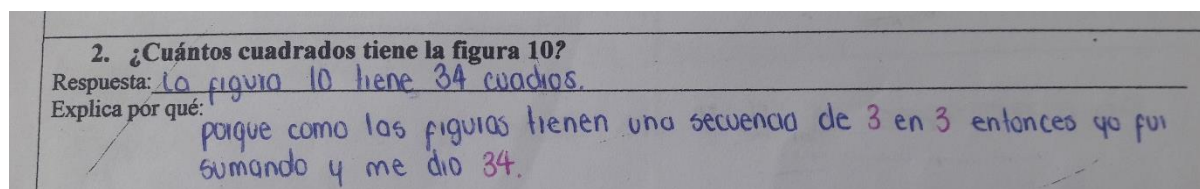 2. ¿Cuántos cuadrados tiene la figura 10?
Respuesta: La figura 10 tiene 34 cuadros.
Explica por qué:
porque como las figuras tienen una secuencia de 3 en 3 entonces yo fui
sumando y me dio 34.